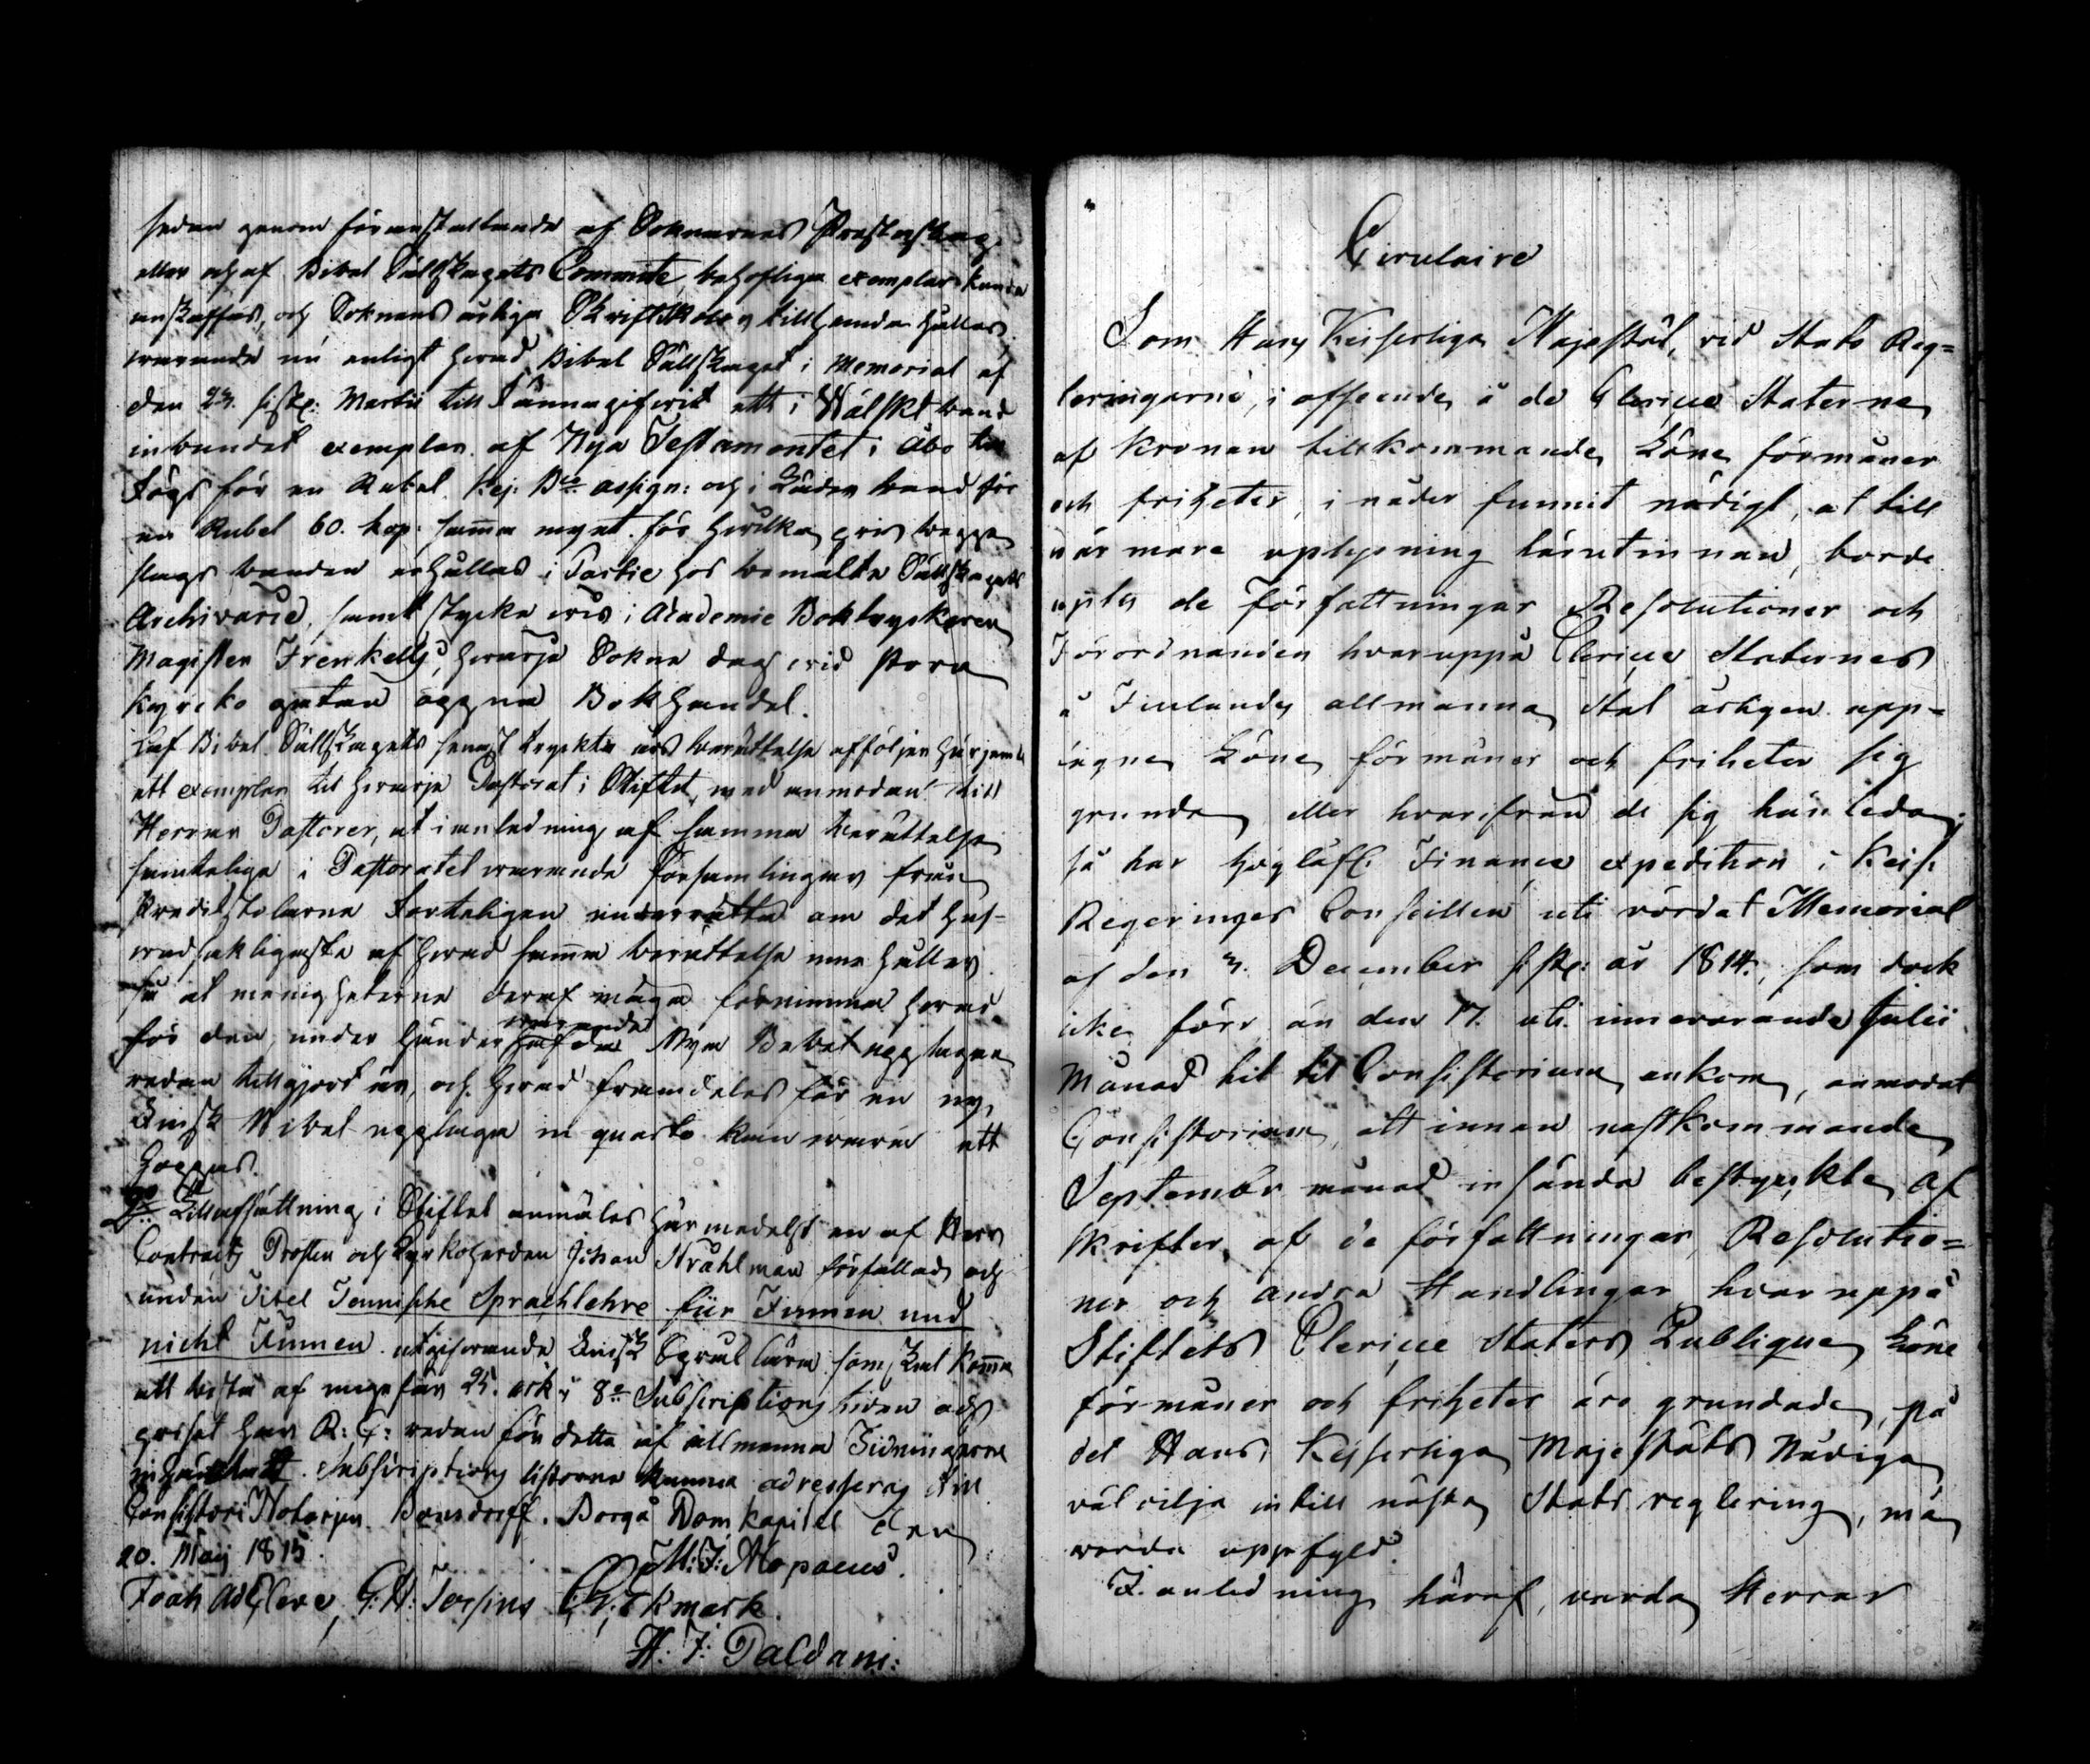 sedan genom föranstaltande af Soknarnes Prästerskap
eller och af Bibel Sällskapets Committé, behöfliga exemplar kunna
anskaffas, och Soknens årliga Skriftskolor tillhanda hållas,
warande nu enligt hwad Bibel Sällskapet i Memorial af
den 23. sistl: Martii till känna gifwit ett i Wälskt band
inbundet exemplar af Nya Testamentet i Åbo
köps för en Rubel Rysk B:co assign: och i Läder band för
en Rubel 60. kop: samma mynt för hwilka pris begge
slags banden erhållas i Partie hos bemälte Sällskapets
Archivarie, samt stycke wis i Academie Boktryckaren
Magister Frenkells, hwarje Sokne dag wid stora
kyrko gatan öppna Bokhandel.
af Bibel Sällskapets senast tryckta års berättelse afföljer härjemte
ett exemplar til hwarje Pastorat i Stiftet, med anmodan till
Herrar Pastorer, at i anledning af samma berättelse
samtelige i Pastoratet warande Församlingar från
Predikstolarne korteligen underrätta om det huf-
wudsakligaste af hwad samma berättelse innehåller
så at menigheterne deraf måga förnimma hwad
för den, under händer warande Nya Bibel upplagan
redan tillgjordt är, och hwad framdeles för en ny
Finsk Bibel upplaga in quarto kan wara att
hoppas.
2:o Till afsättning i Stiftet anmäles härmedelst en af Herr
Contracts Prosten och Kyrkoherden Johan Strahlman författad och
under Titel Finnische Sprachlehre für Finnen und
nicht Finnen utgifwande Finsk Språklära som skal komma
att bestå af ungefär 25. ark i 8:o Subscriptions tiden och
priset har R: C: redan för detta af allmänna Tidningarne
inhämtat. Subscriptions listorne kunna adresseras till
Consistorii Notarien Bonsdorff. Borgå Domkapitel den
20. Maij 1815.
M: J: Alopaeus.
Joah Ad Cleve, G: H: Fortius G: G: Ekmark.
H. J: Paldani:
Circulaire
Som Hans Kejserliga Majestät, vid Stats Reg=
leringarne, i afseende å de Clerice Staterne
af Kronan tillkommande Löne förmåner
och friheter, i nåder funnit nödigt, at till
närmare uplysning lärutinnan, borde
uptes de författningar Resolutioner och
Förordnanden hvaruppå Clerice Staternes
å Finlands allmänna Stat årligen upp=
tagne Löne förmåner och friheter sig
grunda eller hvarifrån de sig härleda;
så har högläfl: Finance expedition i Keis:
Regerings Conseillen uti vördat Memorial
af den 3. December sistl: år 1814., som dock
icke förr än den 17. uti innevarande Julii
Månad hit til Consistorium ankom, anmodat
Consistorium, att innan nästkommande
September månad insända bestyrckte af
skrifter, af de författningar, Resolutio=
ner och andra Handlingar hvaruppå
Stiftets Clerice Staters Publique Löne
förmåner och friheter äro grundade, på
det Hans Kejserliga Majestäts Nådiga
välvilja intill nästa Stats reglering, må
varda uppfyld.
I anledning häraf, varda Herrar